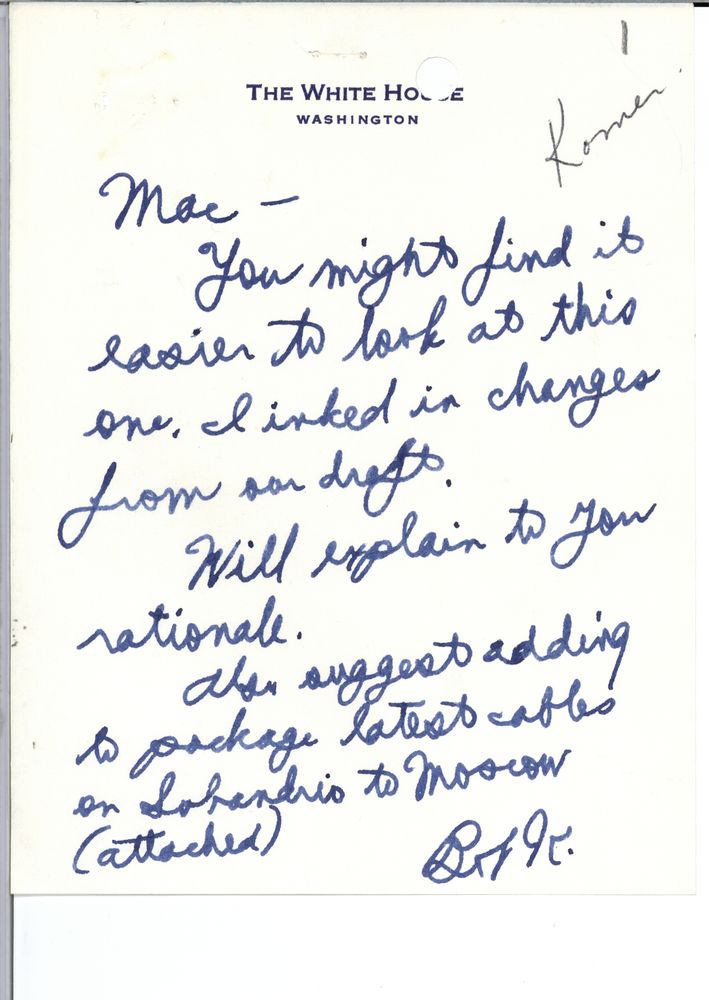 1
Komer
THE WHITE HOUSE
WASHINGTON
Mac –
You might find it
easier to look at this
one. I inked in changes
from our draft.
Will explain to you
rationale.
Also suggest adding
to package latest cables
on Subandrio to Moscow
(attached)
Bob K.